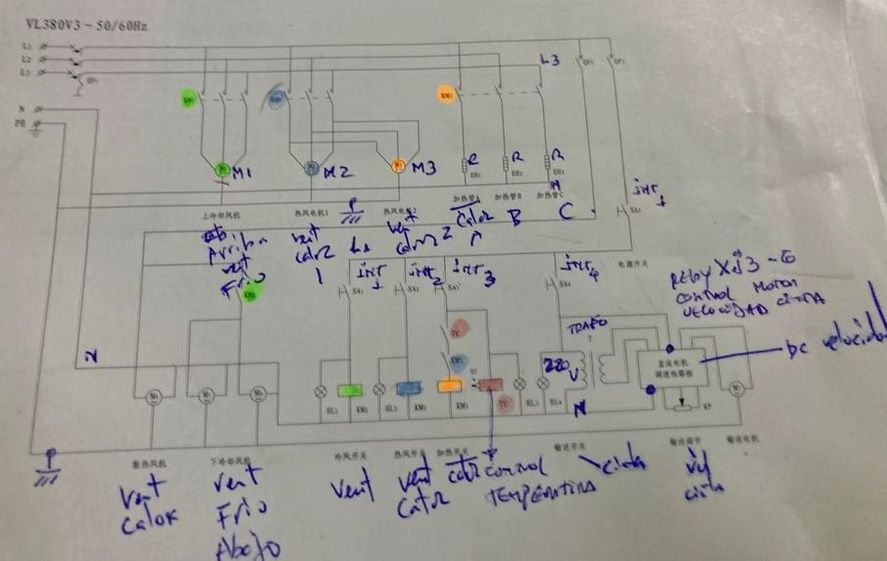 VL380V3~50/60Hz
L1
L2
L3
L3
N
PE
QF1
KM1
KM2
KM3
M1
M2
M3
R
R
R
EH1
EH2
EH3
上冷却风机
热风电机1
热风电机2
加热管A
加热管B
加热管C
int 1
Arriba
vent
Frio
vent
calor
1
vent
calor 2
Calor
A
B
C
电源开关
int 1
int 2
int 3
int 4
SA1
SA2
SA3
SA4
Relay XJ3-G
control motor
velocidad cinta
TC
KM2
TRAFO
T
220
V
直流电机
调速电路板
DC velocidad
N
M4
M5
M6
HL1
KM1
HL2
KM2
KM3
TC
HL3
HL4
N
RP
M7
散热风机
下冷却风机
冷风开关
热风开关
加热开关
输送开关
输送调节
输送电机
vent
calor
vent
Frio
Abajo
vent
vent
calor
calor
control
temperatura
cinta
vel
cinta